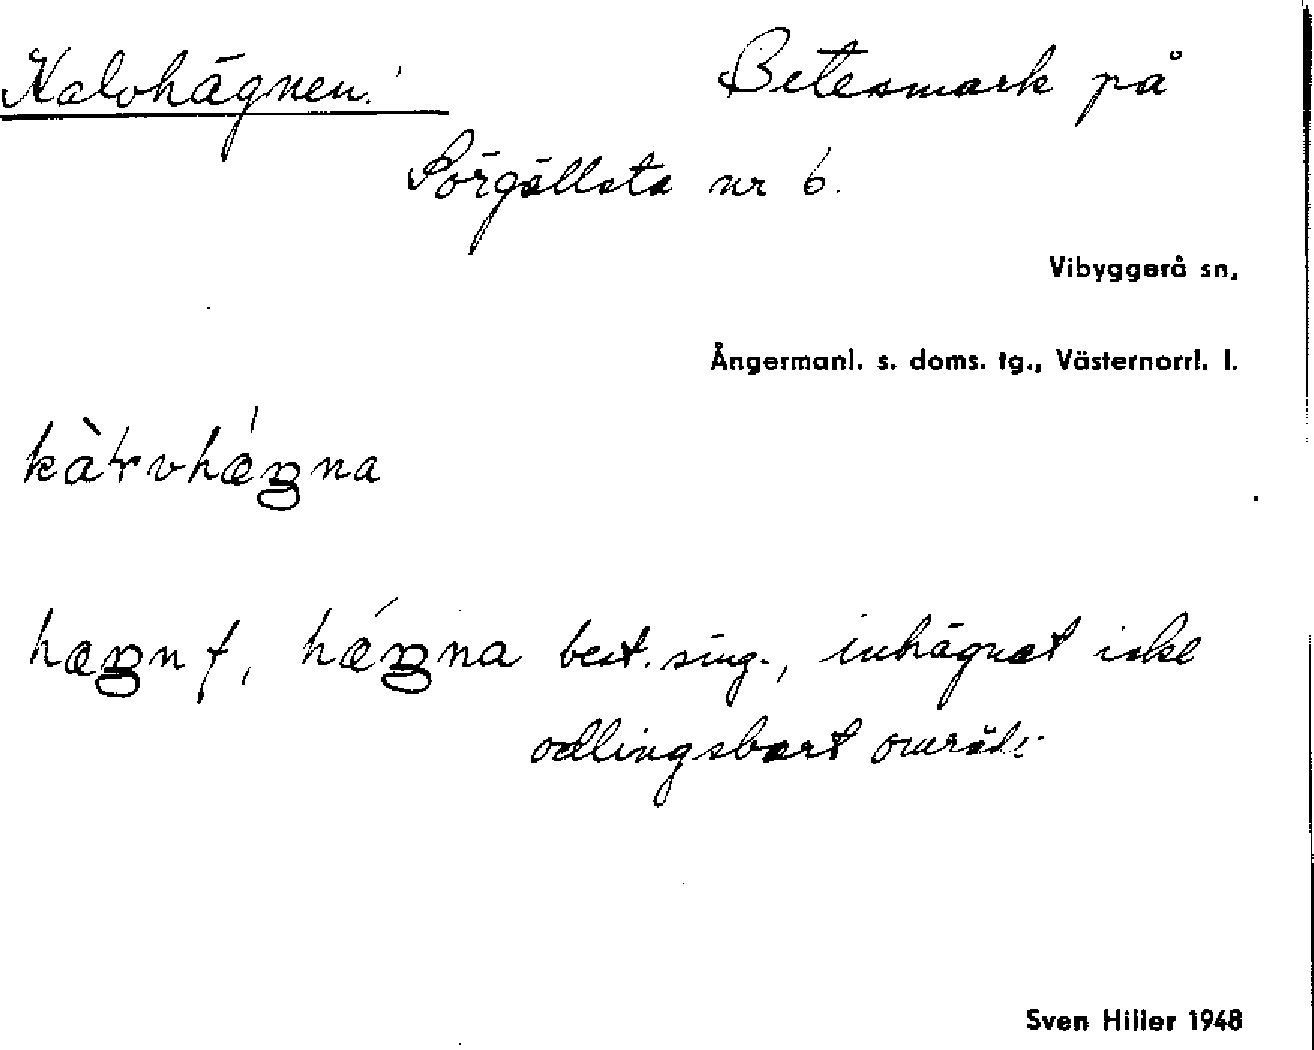 Kalvhägnen. Betesmark på
Sörgällsta nr 6.
Vibyggerå sn,
Ångermanl. s. doms. tg., Västernorrl. l.
hægn f, best. sing., inhägnat icke
odlingsbart område
Sven Hiller 1948